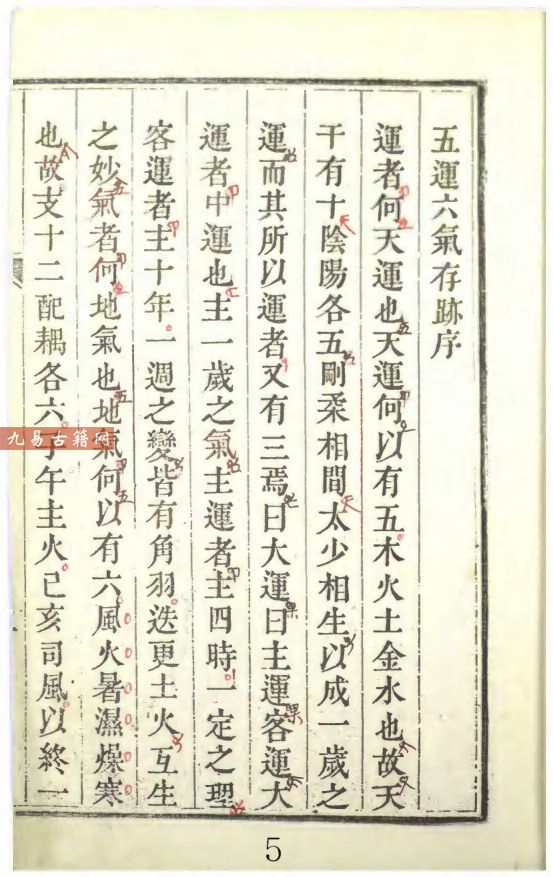 五運六氣存跡序
運者何天運也天運何以有五木火土金水也故天
干有十陰陽各五剛柔相間太少相生以成一歲之
運而其所以運者又有三焉曰大運曰主運客運大
運者中運也主一歲之氣主運者主四時一定之理
客運者主十年一週之變皆有角羽迭更土火互生
之妙氣者何地氣也地氣何以有六風火暑濕燥寒
也故支十二配耦各六子午主火己亥司風以終一
九易古籍网
5